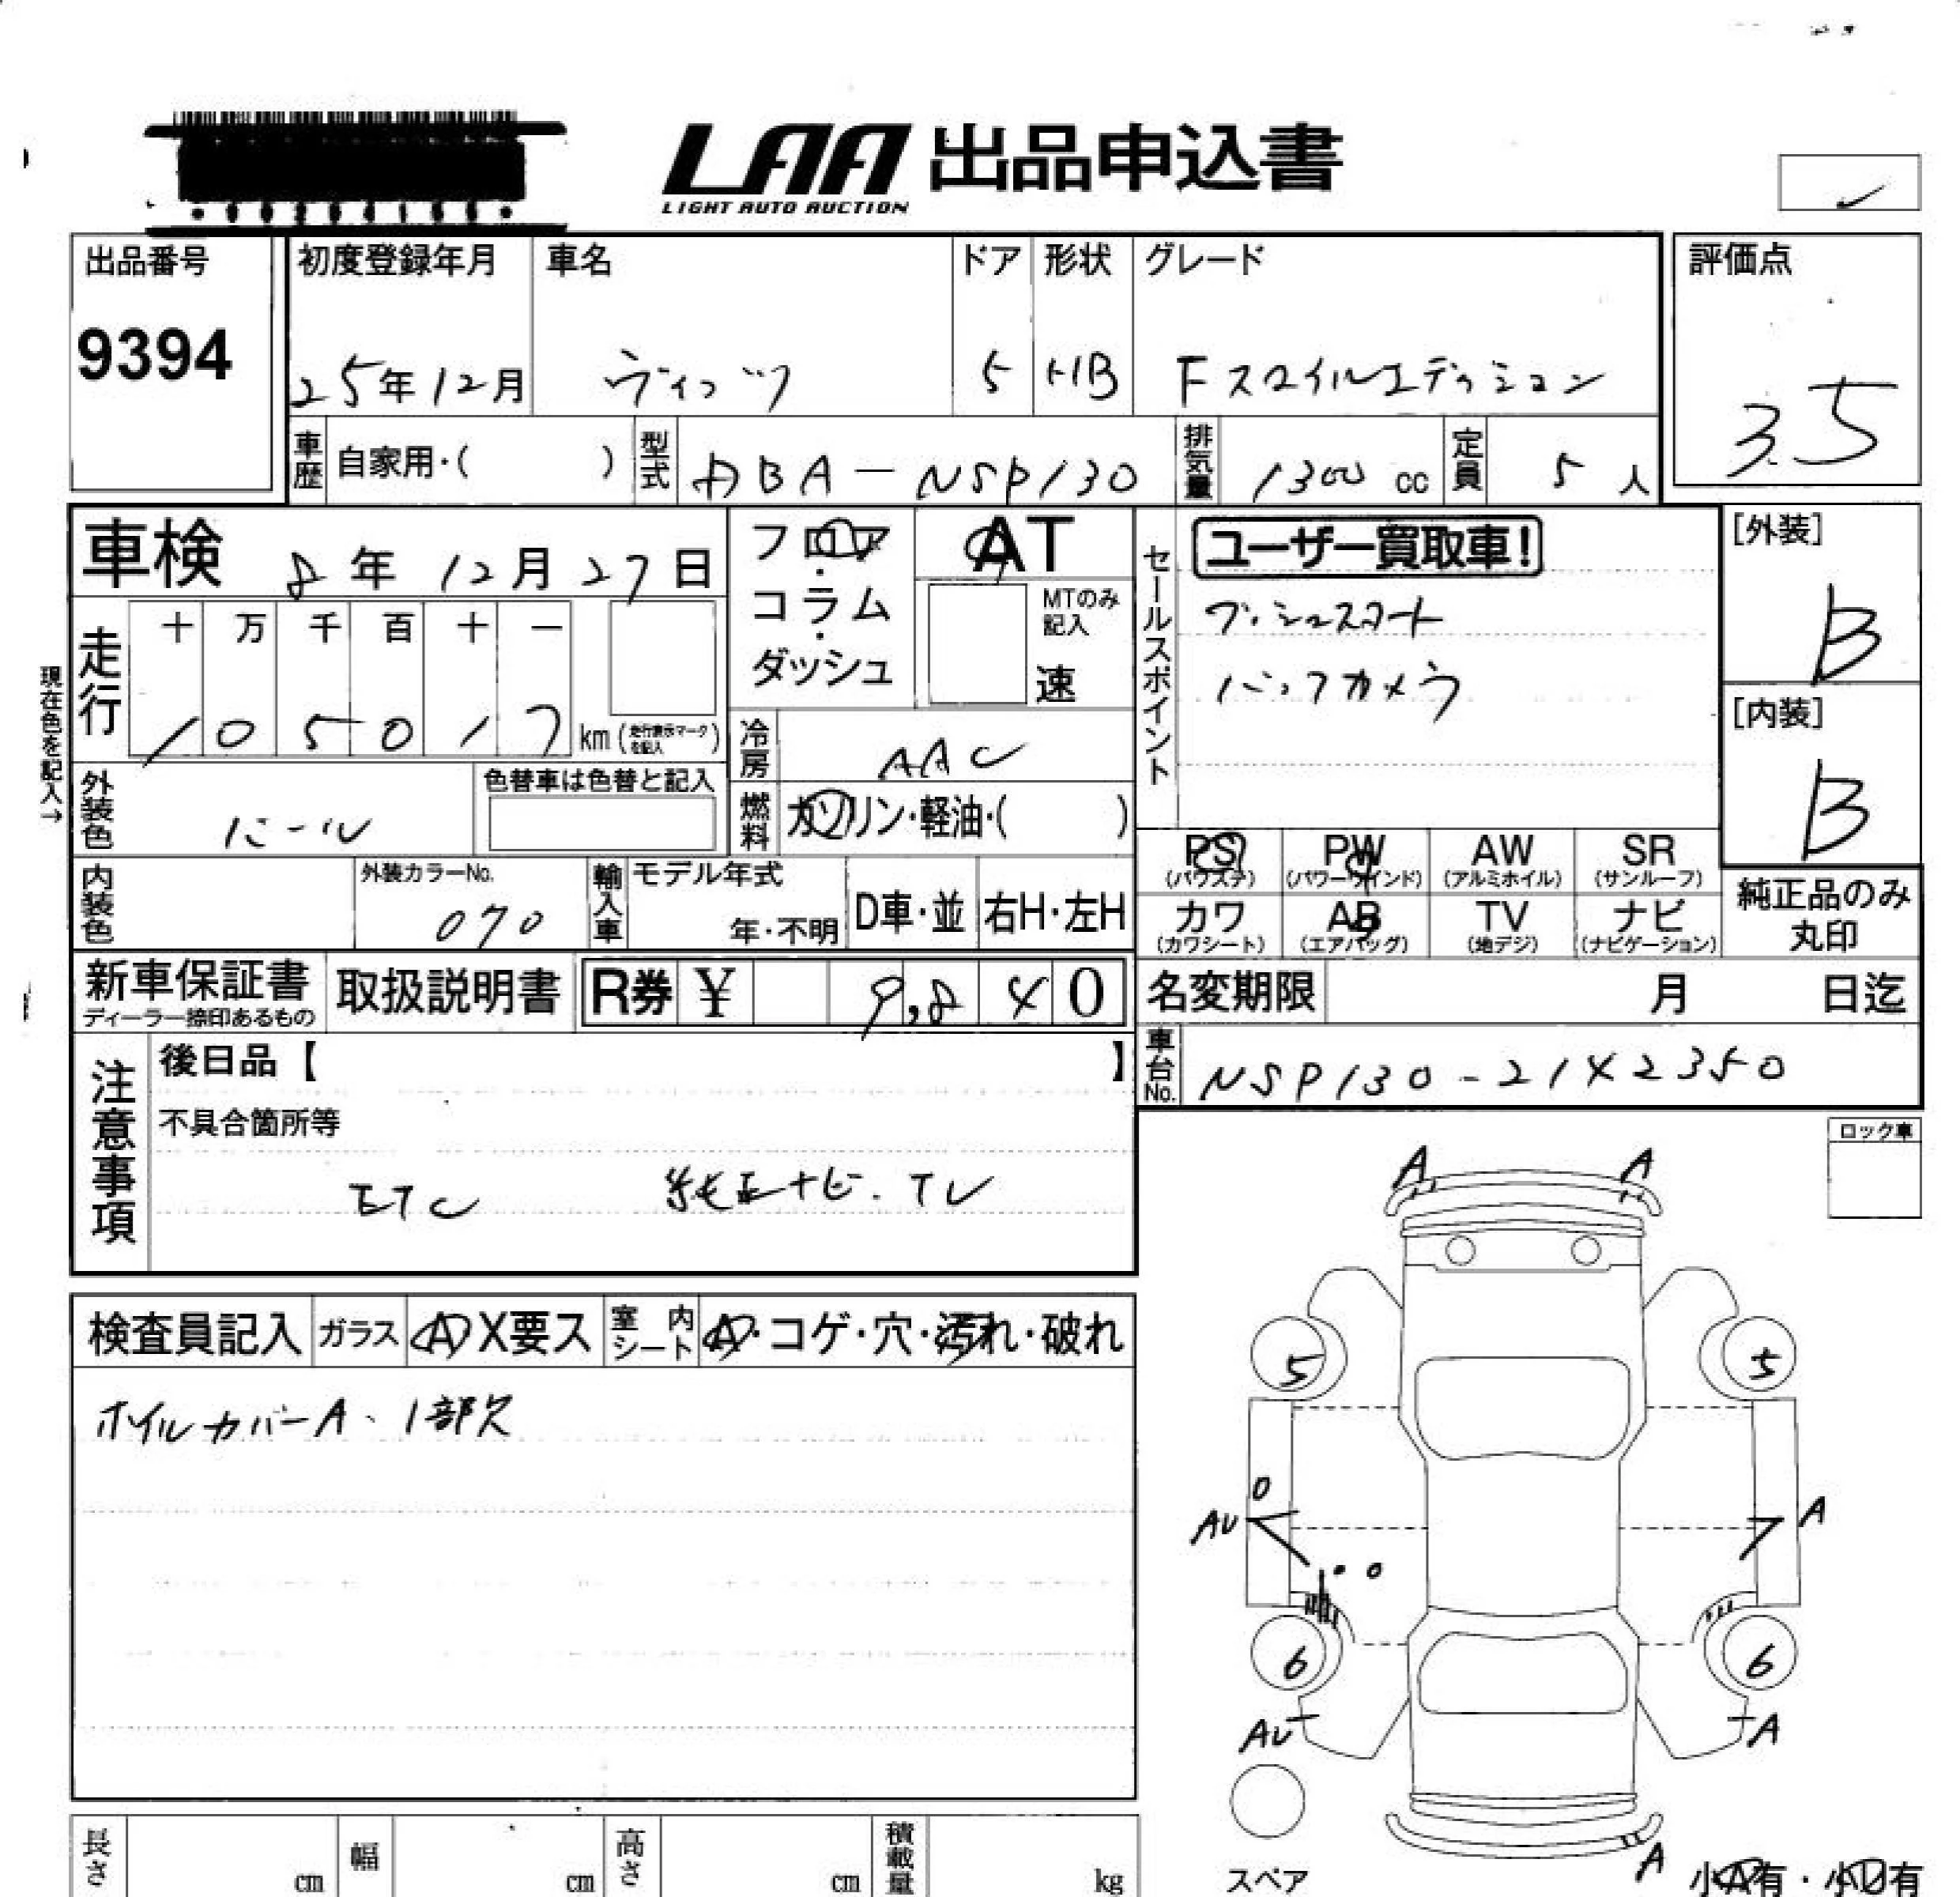 LAA 出品申込書
LIGHT AUTO AUCTION
出品番号 初度登録年月 車名 ドア 形状 グレード 評価点
9394 25年12月 ヴィッツ 5 HB Fスマイルエディション 3.5
車歴 自家用・( ) 型式 DBA-NSP130 排気量 1300 cc 定員 5 人
車検 8年12月27日 フロア・コラム・ダッシュ AT
MTのみ記入 速
セールスポイント ユーザー買取車!
プッシュスタート
バックカメラ
[外装] B
[内装] B
走行 十 万 千 百 十 一
105017 km (走行表示マークを記入)
現在色を記入→
冷房 AAC
外装色 パール 色替車は色替と記入
燃料 ガソリン・軽油・( )
PS (パワステ) PW (パワーウインド) AW (アルミホイル) SR (サンルーフ)
カワ (カワシート) AB (エアバッグ) TV (地デジ) ナビ (ナビゲーション)
純正品のみ丸印
内装色 外装カラーNo. 070 輸入車 モデル年式 年・不明 D車・並 右H・左H
新車保証書 ディーラー捺印あるもの 取扱説明書 R券 ¥ 9,840
名変期限 月 日迄
車台No. NSP130-2142350
注意事項 後日品【 】
不具合箇所等
ETC 純正ナビ.TV
ロック車
検査員記入 ガラス A X要ス 室内シート A・コゲ・穴・汚れ・破れ
ホイルカバーA、1部欠
A A
5 5
AU A
6 6
AU A
A
スペア
小A有・小U有
長さ cm 幅 cm 高さ cm 積載量 kg